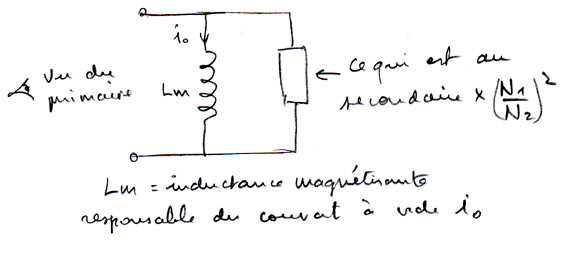 i₀
vu du
primaire
Lm
ce qui est au
secondaire × (N1/N2)²
Lm = inductance magnétisante
responsable du courant à vide i₀